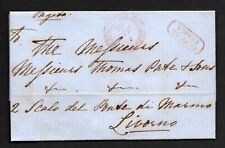 Pagato
The Messieurs
Messieurs Thomas Pate & Sons
2 Scalo del Ponte di Marmo
Livorno